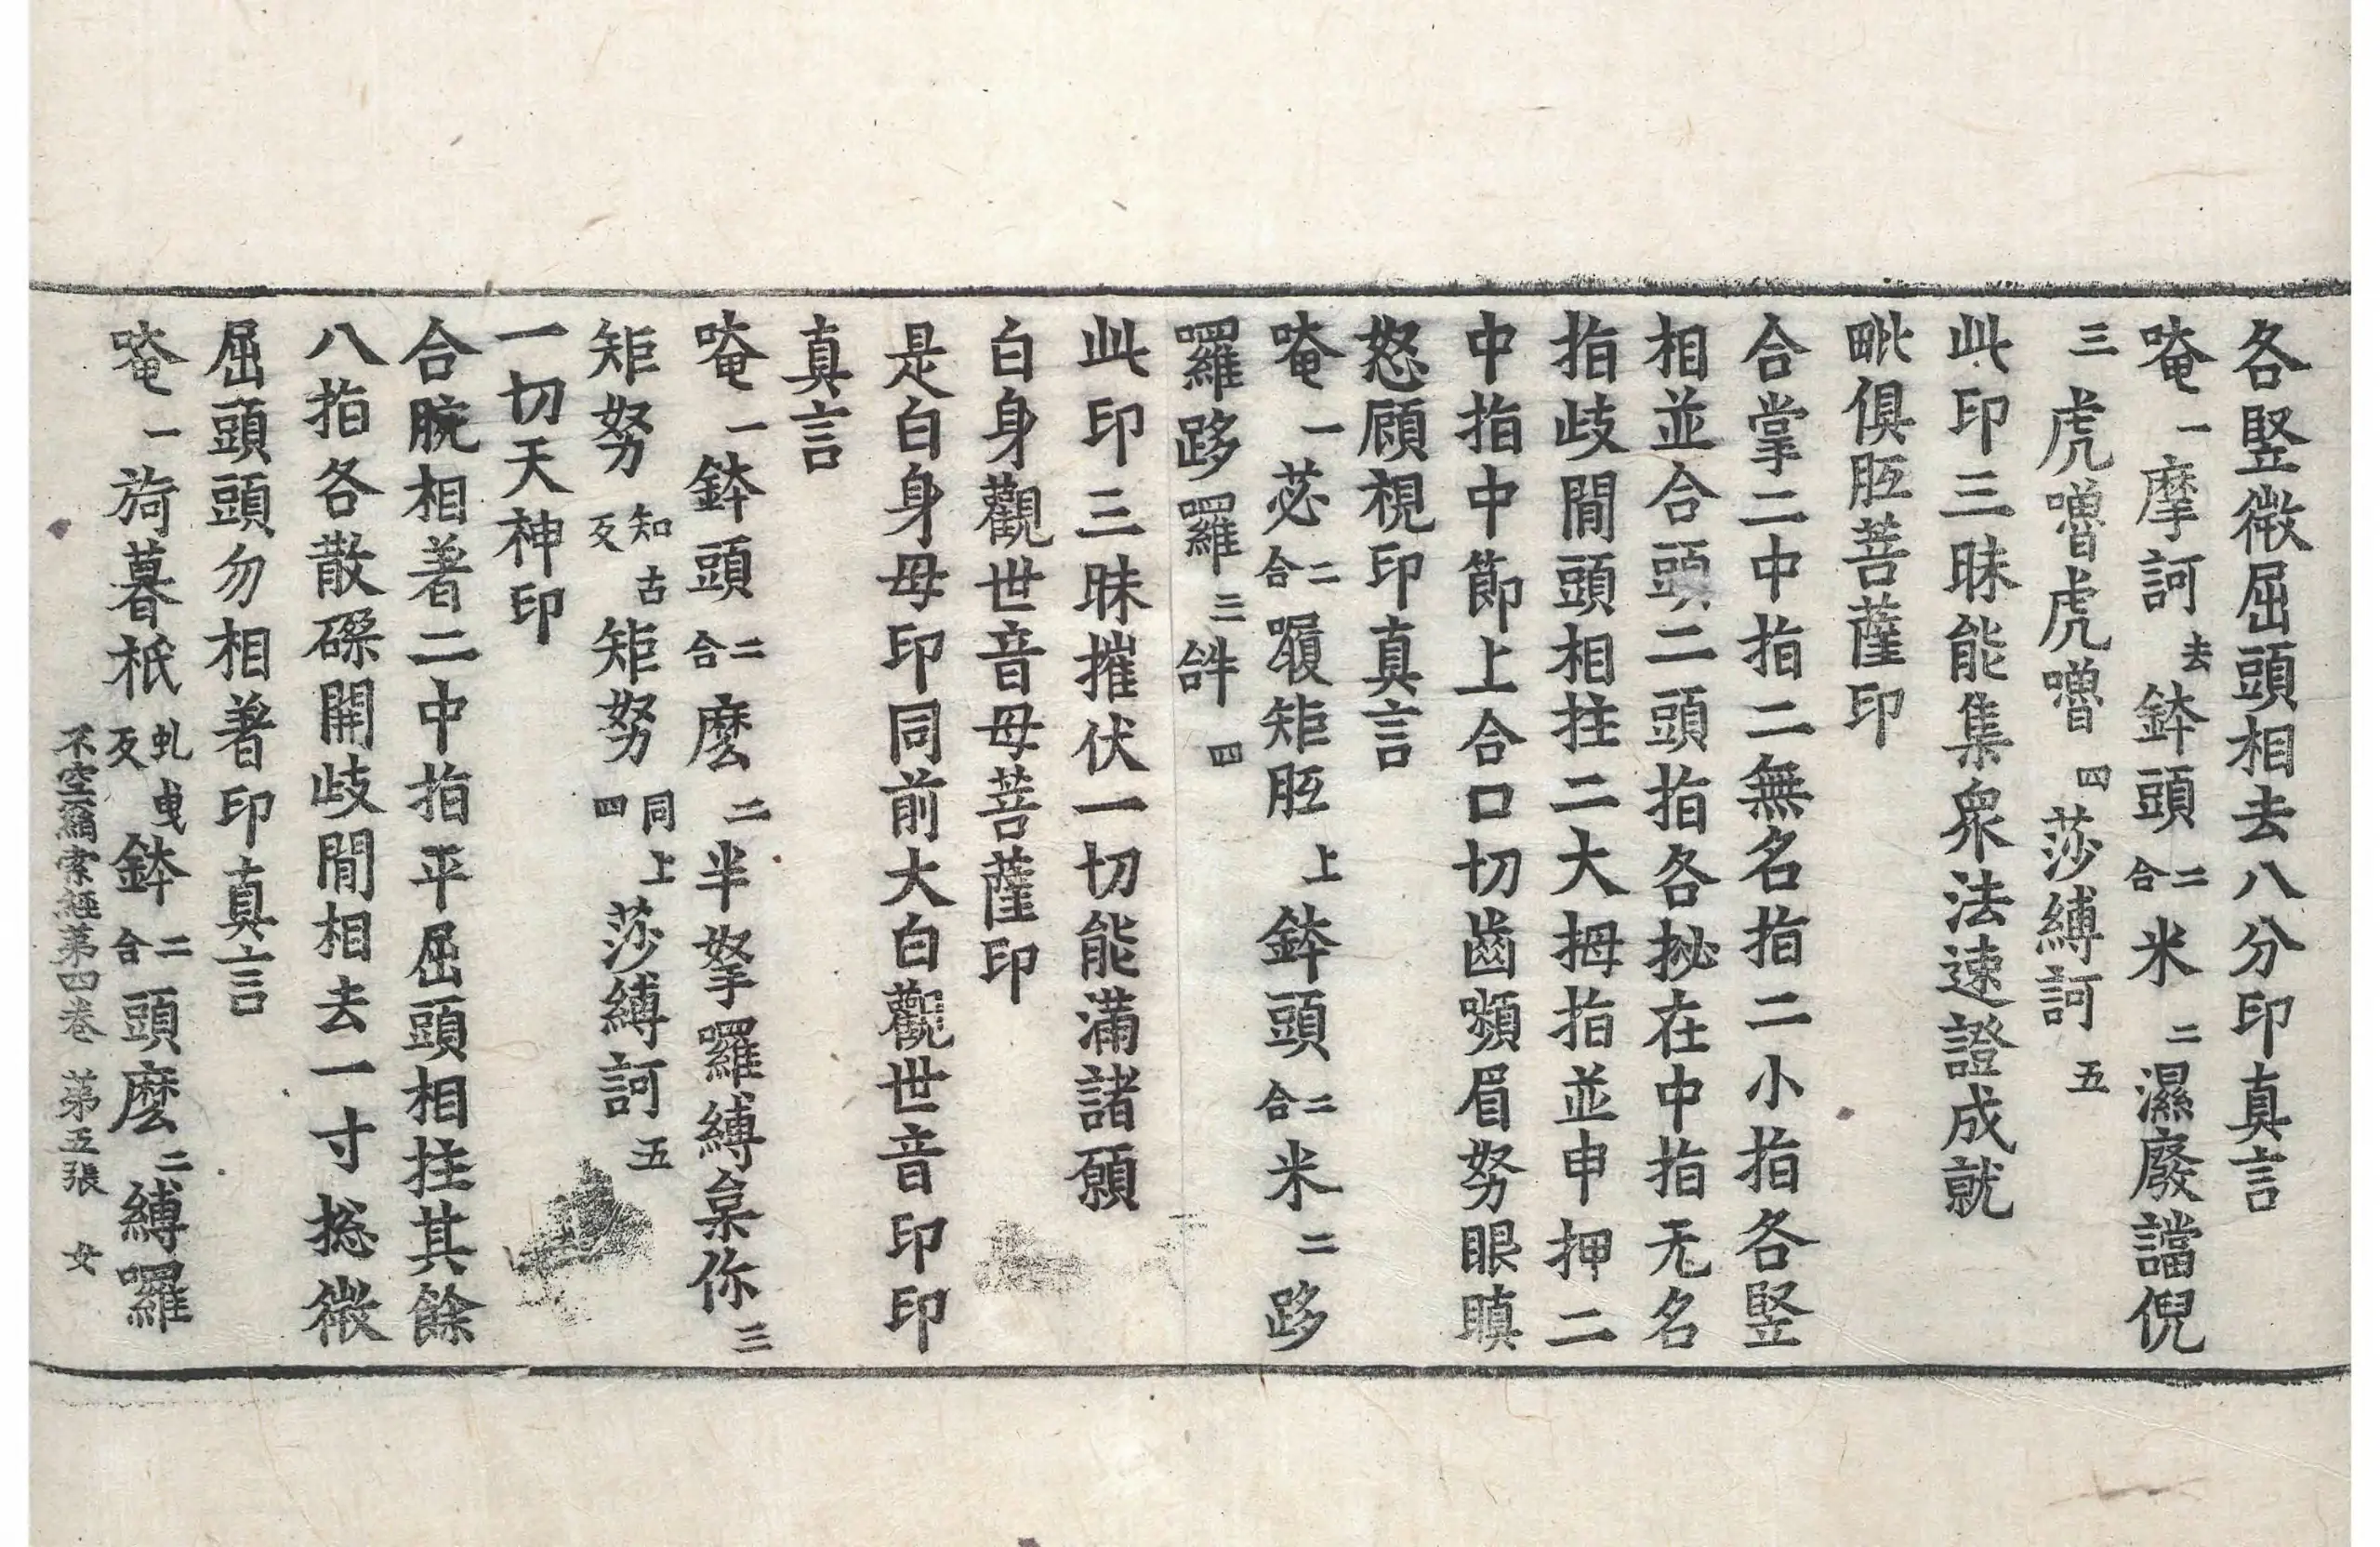 各竪微屈頭相去八分印真言
唵一摩訶去鉢頭二合米二濕廢諡倪
三虎嚕虎嚕四莎縛訶五
此印三昧能集衆法速證成就
毗俱胝菩薩印
合掌二中指二無名指二小指各竪
相並合頭二頭指各拟在中指无名
指歧閒頭相拄二大拇指並申押二
中指中節上合口切齒嚬眉努眼瞋
怒顧視印真言
唵一苾二合㗚矩胝上鉢頭二合米二跢
囉跢囉三𤙖四
此印三昧摧伏一切能滿諸願
白身觀世音母菩薩印
是白身母印同前大白觀世音印印
真言
唵一鉢頭二合麽二半拏囉縛枲你三
矩努知古反矩努同上四莎縛訶五
一切天神印
合腕相著二中指平屈頭相拄其餘
八指各散磔開歧閒相去一寸捴微
屈頭頭勿相著印真言
唵一旖暮袛虬曳反鉢二合頭麽二縛囉
不空羂索經第四卷　第五張　女